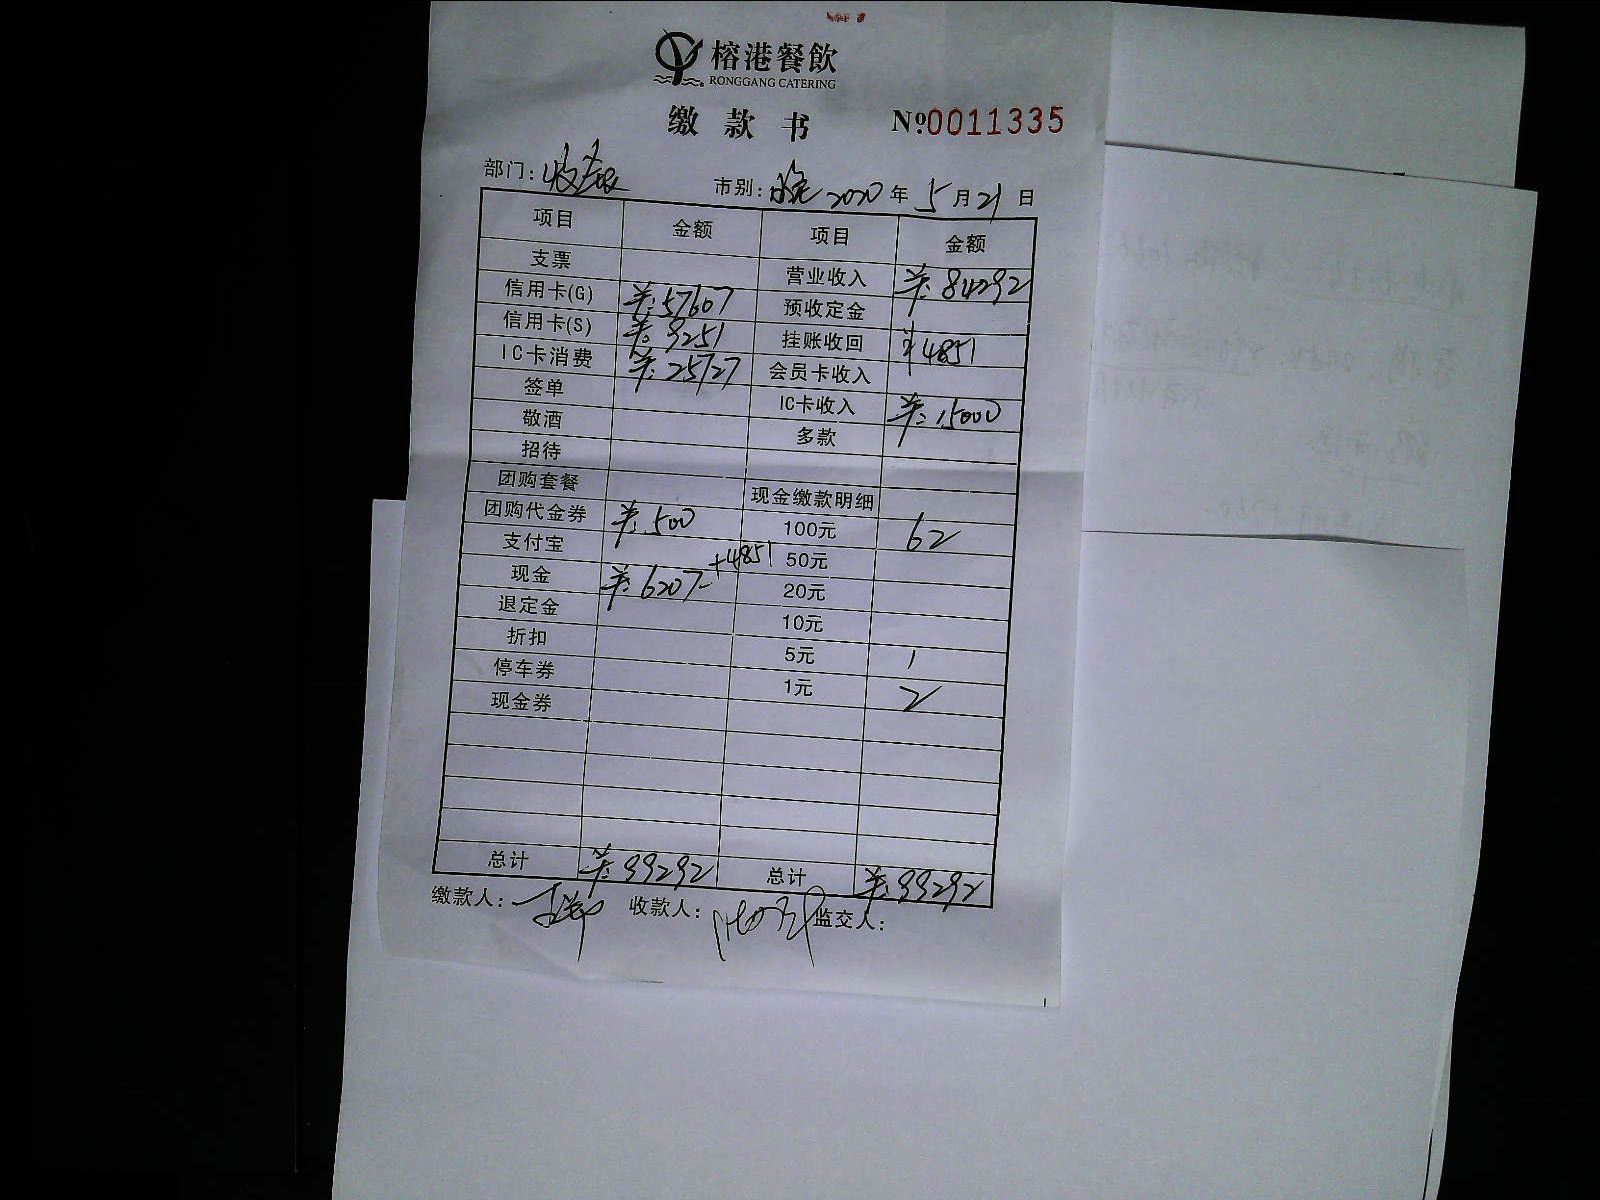 榕港餐飲
RONGGANG CATERING
缴款书 №0011335
部门: 收银 市别: 晚 2020年5月21日
项目 金额 项目 金额
支票 营业收入 ¥:84292
信用卡(G) ¥:57607 预收定金
信用卡(S) ¥:9251 挂账收回 ¥4851
IC卡消费 ¥:25727 会员卡收入
签单 IC卡收入 ¥:15000
敬酒 多款
招待
团购套餐 现金缴款明细
团购代金券 ¥:500 100元 62
支付宝 50元
现金 ¥:6207 +4851 20元
退定金 10元
折扣 5元 1
停车券 1元 2
现金券
总计 ¥:99292 总计 ¥:99292
缴款人: 收款人: 监交人: